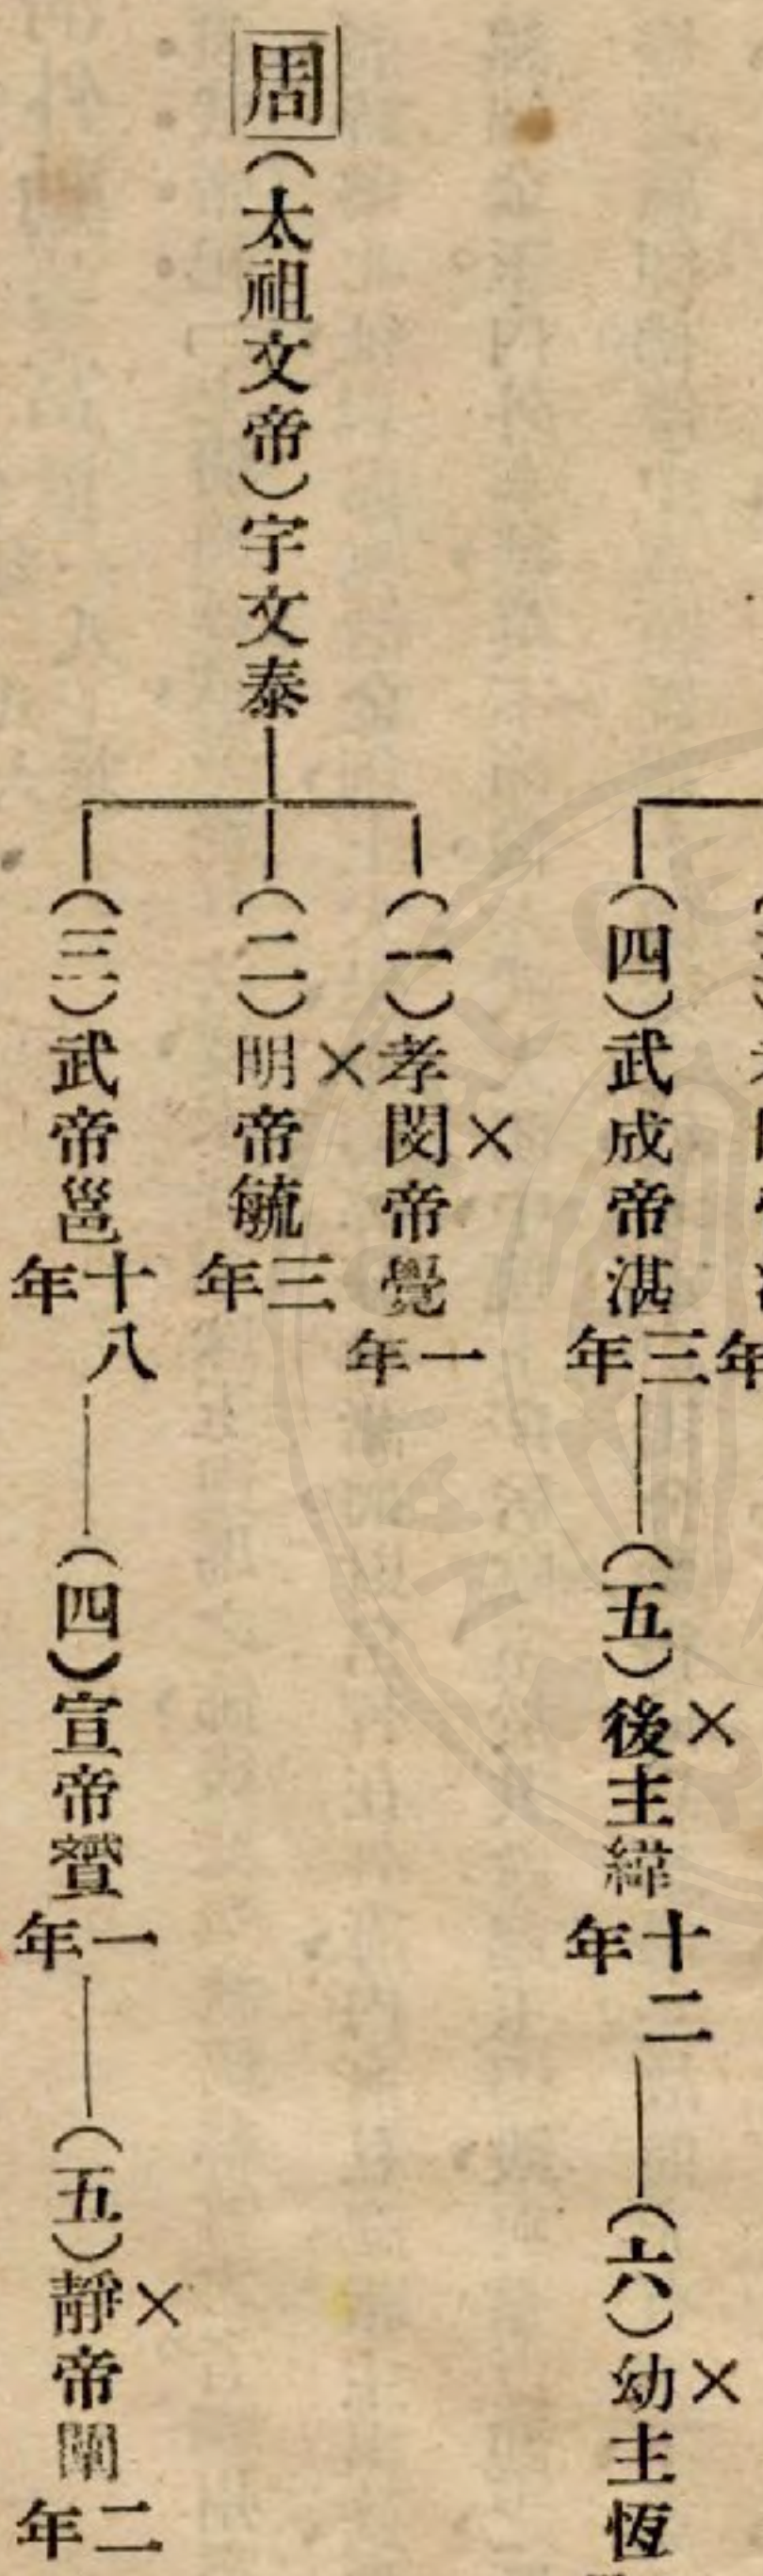 (四)武成帝湛三年
(五)後主緯十二年
(六)幼主恆
周(太祖文帝)宇文泰
(一)孝閔帝覺一年
(二)明帝毓三年
(三)武帝邕十八年
(四)宣帝贇一年
(五)靜帝闡二年